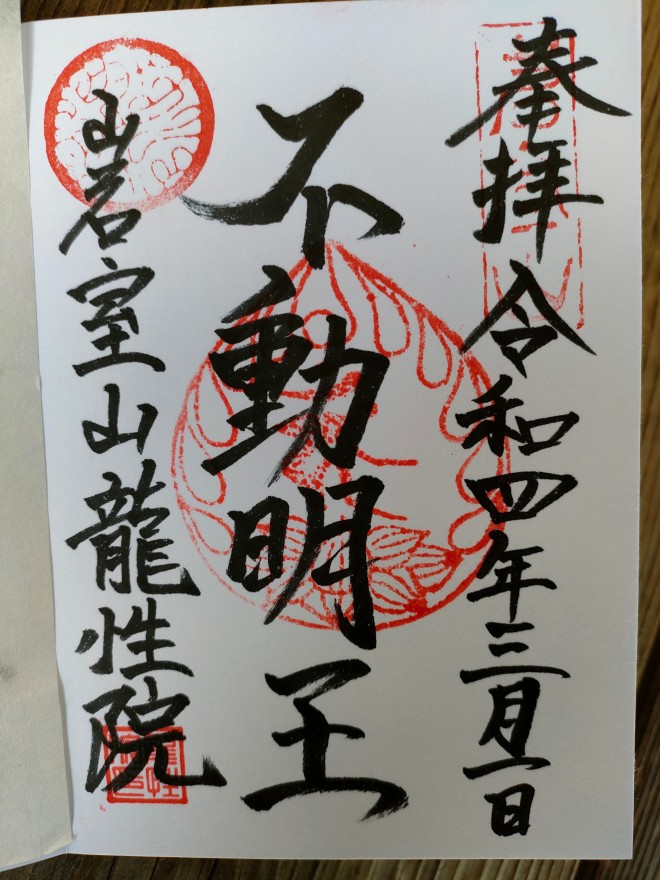 奉拝 令和四年三月一日
不動明王
岩室山龍性院